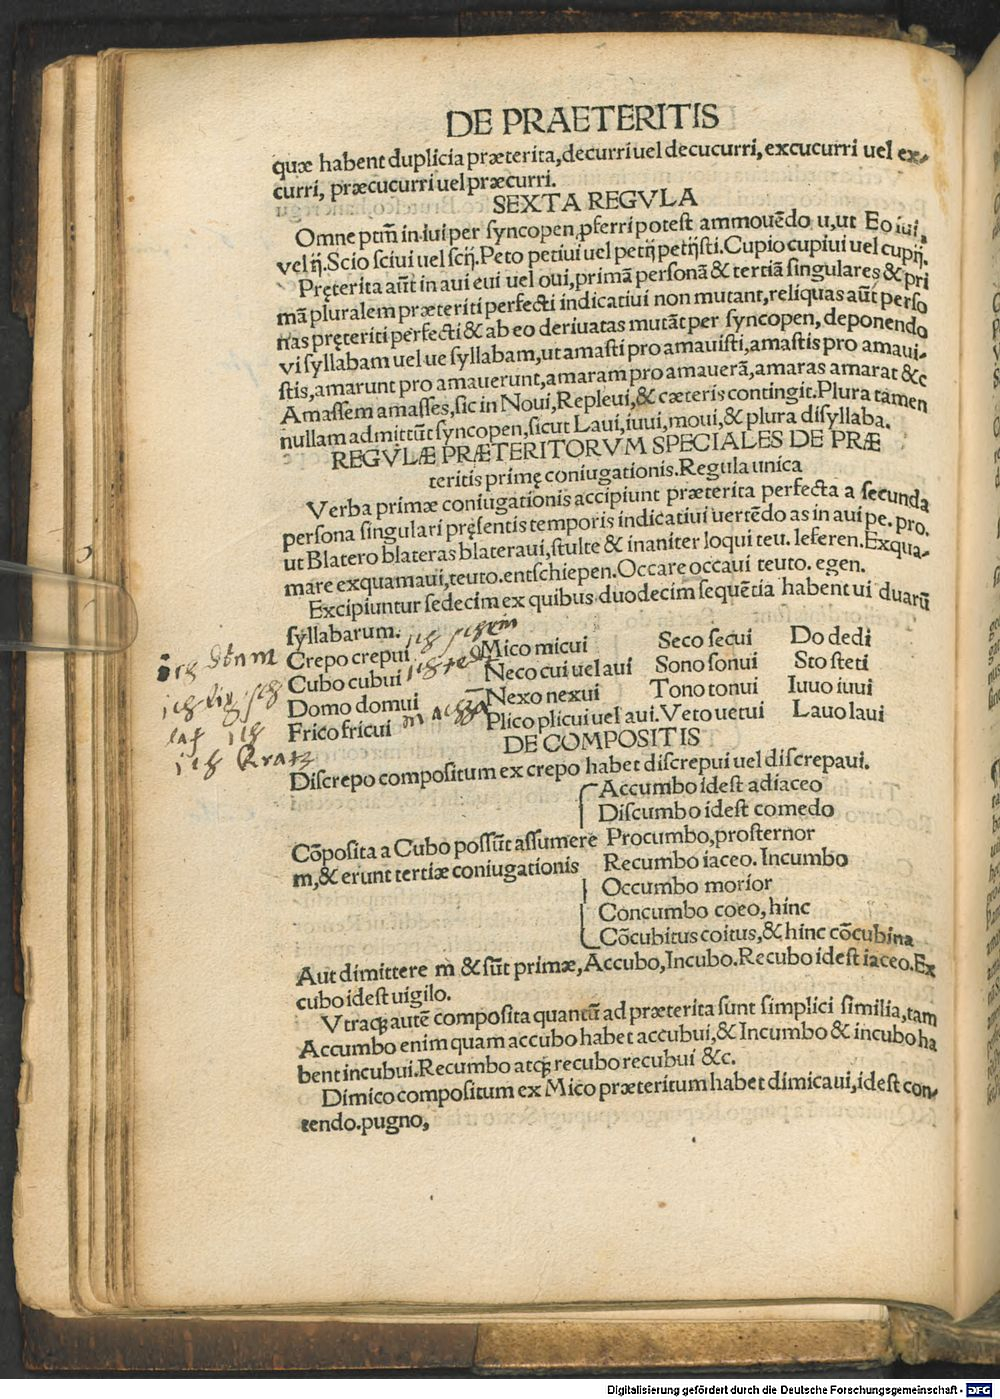 DE PRAETERITIS
quæ habent duplicia præterita,decurri uel decucurri, excucurri uel ex-
curri, præcucurri uel præcurri.
SEXTA REGVLA
Omne ptm̃ in.iui per syncopen,pferri potest ammouẽdo u,ut Eo iui,
vel ij.Scio sciui uel scij.Peto petiui uel petij petijsti.Cupio cupiui uel cupij.
Pręterita aũt in aui eui uel oui,primã personã & tertiã singulares & pri
mã pluralem præteriti perfecti indicatiui non mutant,reliquas aũt perso
nas pręteriti perfecti & ab eo deriuatas mutãt per syncopen, deponendo
vi syllabam uel ue syllabam,ut amasti pro amauisti,amastis pro amaui-
stis,amarunt pro amauerunt,amaram pro amauerã,amaras amarat &c
Amassem amasses,sic in Noui,Repleui,& cæteris contingit.Plura tamen
nullam admittũt syncopen,sicut Laui,iuui,moui,& plura disyllaba.
REGVLÆ PRÆTERITORVM SPECIALES DE PRÆ
teritis primę coniugationis.Regula unica
Verba primæ coniugationis accipiunt præterita perfecta a secunda
persona singulari pręsentis temporis indicatiui uertẽdo as in aui pe. pro.
ut Blatero blateras blateraui,stulte & inaniter loqui teu. leferen.Exqua-
mare exquamaui,teuto.entschiepen.Occare occaui teuto. egen.
Excipiuntur sedecim ex quibus duodecim sequẽtia habent ui duarũ
syllabarum.
ich
Crepo crepui Mico micui Seco secui Do dedi
ich
Cubo cubui Neco cui uel aui Sono sonui Sto steti
ich
Domo domui Nexo nexui Tono tonui Iuuo iuui
ich
Frico fricui Plico plicui uel aui.Veto uetui Lauo laui
ich Kratz
DE COMPOSITIS
Discrepo compositum ex crepo habet discrepui uel discrepaui.
Accumbo idest adiaceo
Discumbo idest comedo
Cõposita a Cubo possũt assumere Procumbo,prosternor
m,& erunt tertiæ coniugationis Recumbo iaceo. Incumbo
Occumbo morior
Concumbo coeo, hinc
Cõcubitus coitus,& hinc cõcubina
Aut dimittere m & sũt primæ,Accubo,Incubo.Recubo idest iaceo.Ex
cubo idest uigilo.
Vtraqꝫ autẽ composita quantũ ad præterita sunt simplici similia,tam
Accumbo enim quam accubo habet accubui,& Incumbo & incubo ha
bent incubui.Recumbo atqꝫ recubo recubui &c.
Dimico compositum ex Mico præteritum habet dimicaui,idest con-
tendo.pugno,
Digitalisierung gefördert durch die Deutsche Forschungsgemeinschaft - DFG